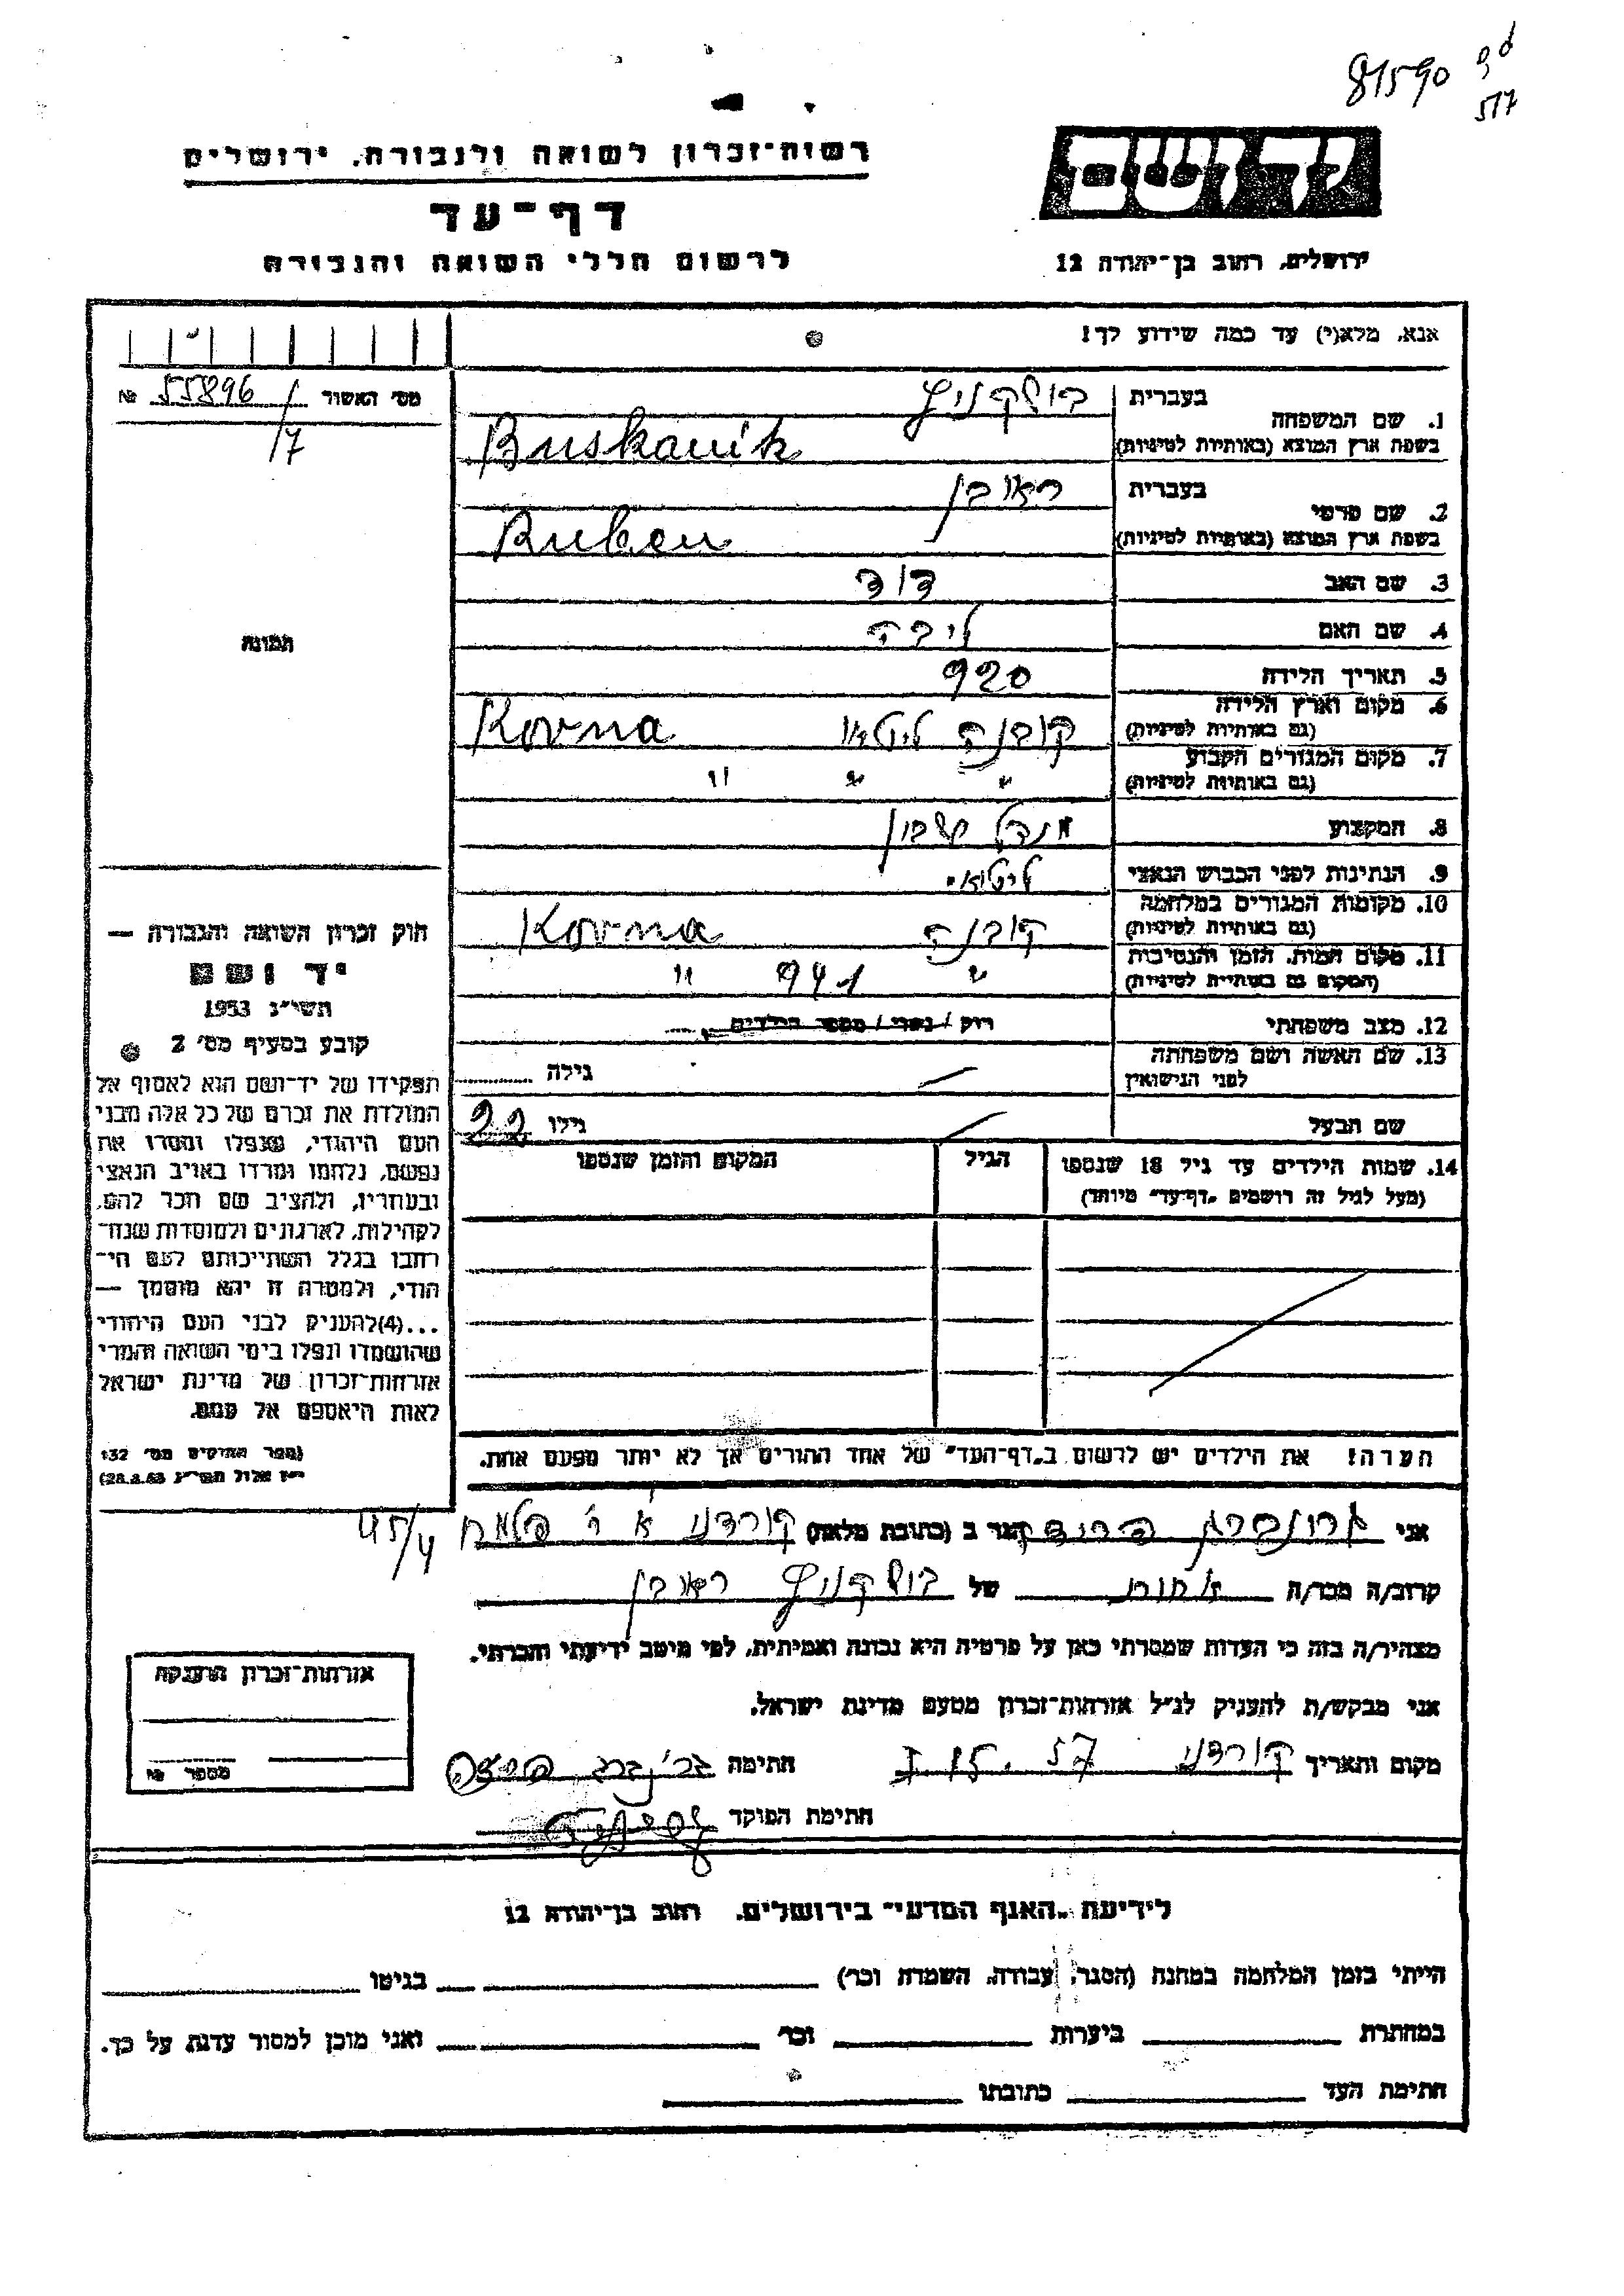 81590
517
יד ושם
רשות-זכרון לשואה ולגבורה, ירושלים
דף-עד
לרשום חללי השואה והגבורה
ירושלים, רחוב בן-יהודה 12
אנא, מלא(י) עד כמה שידוע לך!
מס׳ האשור 55896 №
/7
תמונה
1. שם המשפחה
בעברית בושקניץ
בשפת ארץ המוצא (באותיות לטיניות) Buskanik
2. שם פרטי
בעברית ראובן
בשפת ארץ המוצא (באותיות לטיניות) Ruben
3. שם האב דוד
4. שם האם ליבה
5. תאריך הלידה 920
6. מקום וארץ הלידה קובנה ליטא Kovna
(גם באותיות לטיניות)
7. מקום המגורים הקבוע " " "
(גם באותיות לטיניות)
8. המקצוע מנהל חשבון
9. הנתינות לפני הכבוש הנאצי ליטאי
10. מקומות המגורים במלחמה קובנה Kovna
(גם באותיות לטיניות)
11. מקום המות, הזמן והנסיבות " 941 "
(המקום גם באותיות לטיניות)
12. מצב משפחתי רוק / נשוי / מספר הילדים
13. שם האשה ושם משפחתה
לפני הנישואין
גילה
שם הבעל גילו 22
14. שמות הילדים עד גיל 18 שנספו הגיל המקום והזמן שנספו
(מעל לגיל זה רושמים „דף-עד” מיוחד)
חוק זכרון השואה והגבורה —
יד ושם
תשי״ג 1953
קובע בסעיף מס׳ 2
תפקידו של יד-ושם הוא לאסוף אל
המולדת את זכרם של כל אלה מבני
העם היהודי, שנפלו ומסרו את
נפשם, נלחמו ומרדו באויב הנאצי
ובעוזריו, ולהציב שם וזכר להם,
לקהילות, לארגונים ולמוסדות שנח-
רבו בגלל השתייכותם לעם הי-
הודי, ולמטרה זו יהא מוסמך —
...(4) להעניק לבני העם היהודי
שהושמדו ונפלו בימי השואה והמרי
אזרחות-זכרון של מדינת ישראל
לאות היאספם אל עמם.
(ספר החוקים מס׳ 132
י״ז אלול תשי״ג 28.8.53)
הערה! את הילדים יש לרשום ב„דף-העד” של אחד ההורים אך לא יותר מפעם אחת.
אני הגר ב (כתובת מלאה) קורדני א ר׳ 45/4
קרוב/ה מכר/ה אחות של בושקניץ ראובן
מצהיר/ה בזה כי העדות שמסרתי כאן על פרטיה היא נכונה ואמיתית, לפי מיטב ידיעתי והכרתי.
אני מבקש/ת להעניק לנ״ל אזרחות-זכרון מטעם מדינת ישראל.
מקום ותאריך קורדני 57 חתימה
חתימת הפוקד
אזרחות-זכרון הוענקה
מספר №
לידיעת „האגף המדעי” בירושלים, רחוב בן-יהודה 12
הייתי בזמן המלחמה במחנה (הסגר, עבודה, השמדה וכו׳) בגיטו
במחתרת ביערות וכו׳ ואני מוכן למסור עדות על כך.
חתימת העד כתובתו